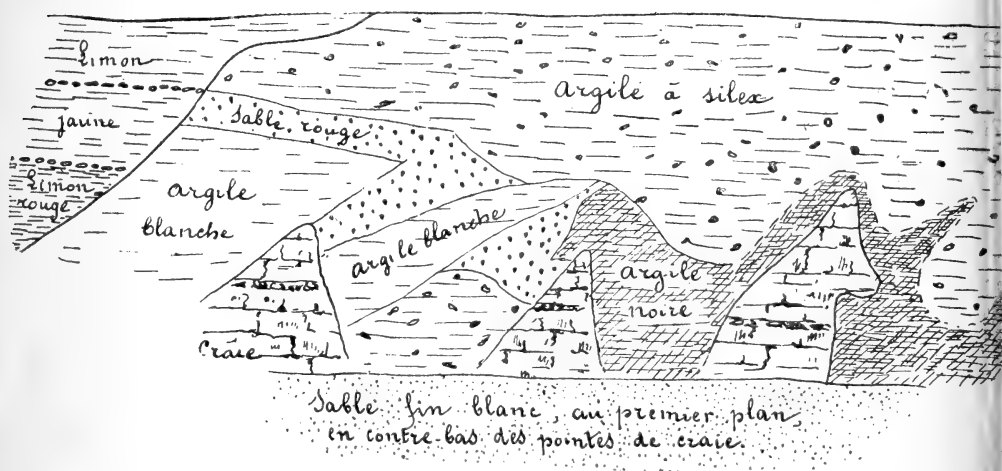 Limon
jaune
Limon
rouge
argile à silex
Sable rouge
argile
blanche
argile blanche
argile
noire
Craie
Sable fin blanc, au premier plan,
en contre-bas des pointes de craie.